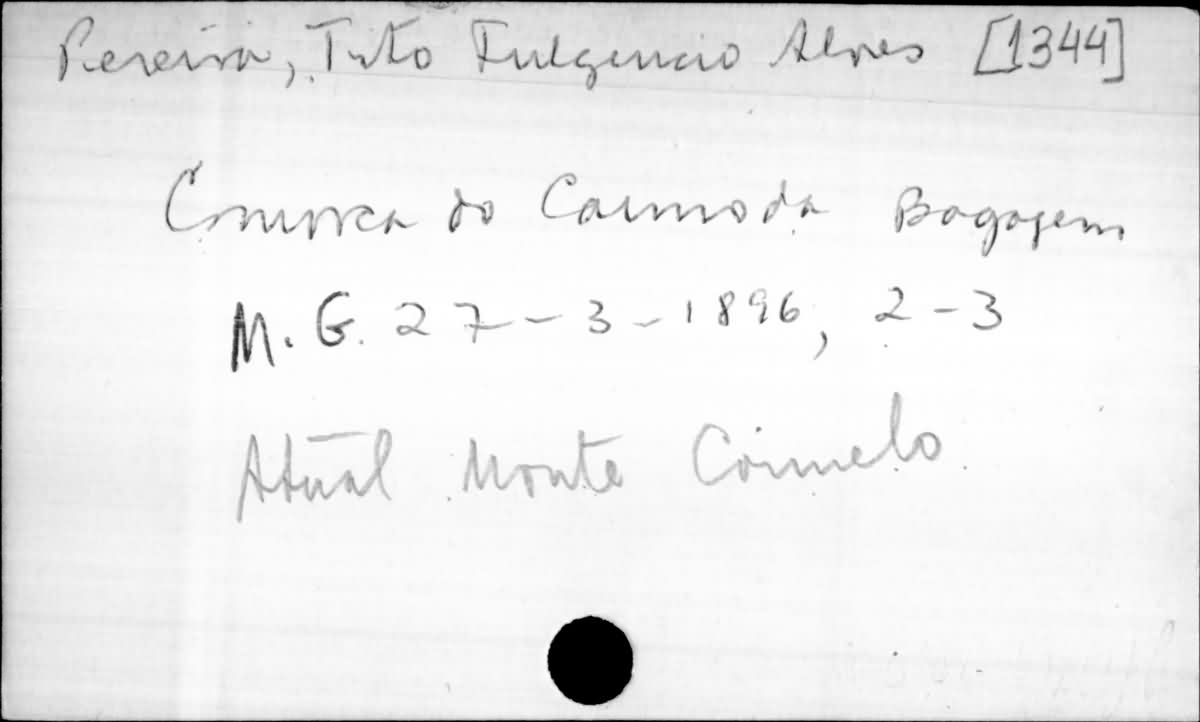 Pereira, Tito Fulgencio Alves [1344]
Comarca do Carmo da Bagagem
M. G. 27-3-1896, 2-3
Atual Monte Carmelo